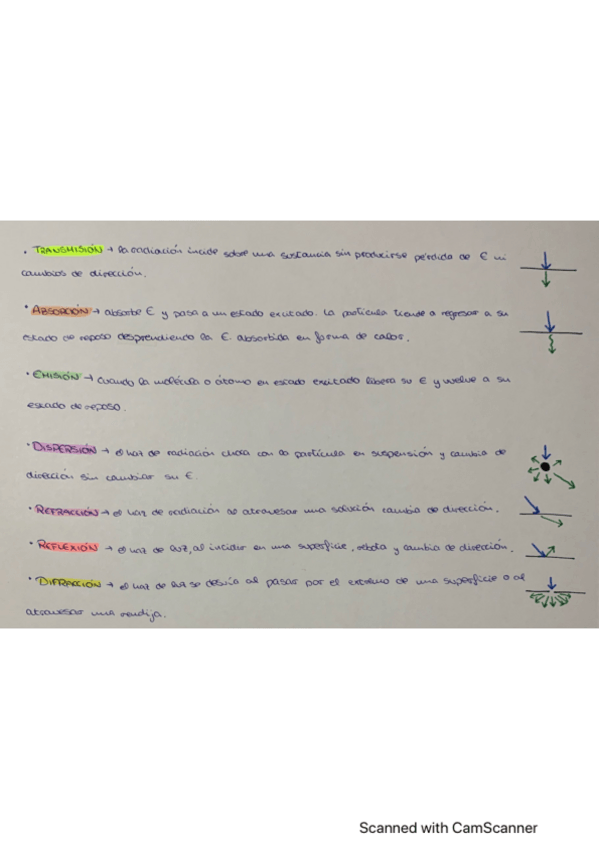 · TRANSMISIÓN → la radiación incide sobre una sustancia sin producirse pérdida de E ni
cambios de dirección.
· ABSORCIÓN → absorbe E y pasa a un estado excitado. La partícula tiende a regresar a su
estado de reposo desprendiendo la E absorbida en forma de calor.
· EMISIÓN → Cuando la molécula o átomo en estado excitado libera su E y vuelve a su
estado de reposo.
· DISPERSIÓN → el haz de radiación choca con la partícula en suspensión y cambia de
dirección sin cambiar su E.
· REFRACCIÓN → el haz de radiación al atravesar una solución cambia de dirección.
· REFLEXIÓN → el haz de luz, al incidir en una superficie, rebota y cambia de dirección.
· DIFRACCIÓN → el haz de luz se desvía al pasar por el extremo de una superficie o al
atravesar una rendija.
Scanned with CamScanner